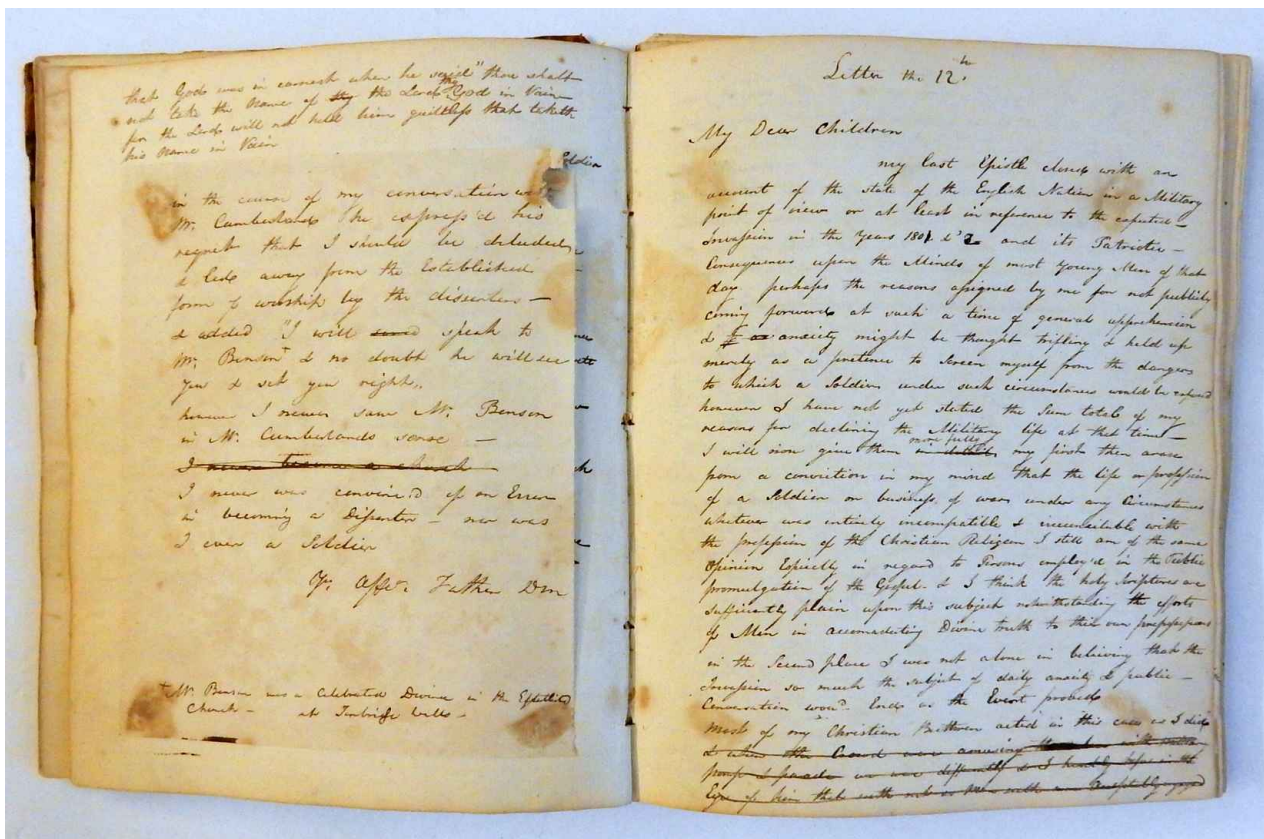 that God was in earnest when he said "thou shalt
not take the Name of thy the Lord thy God in Vain
for the Lord will not hold him guiltless that taketh
his Name in Vain
Soldier
in the course of my conversation with
Mr. Cumberland he express'd his
regret that I should be deluded
& led away from the Established
form of worship by the dissenters —
& added "I will send speak to
Mr. Benson & no doubt he will see
you & set you right"
however I never saw Mr. Benson
in Mr. Cumberlands sense —
I never became a church
I never was convinc'd of an Error
in becoming a Dissenter — nor was
I ever a Soldier
Yr. Affe. Father Dm
+ Mr. Benson was a Celebrated Divine in the Established
Church — at Tunbridge Wells —
Letter the 12th
My Dear Children
my last Epistle closed with an
account of the state of the English Nation in a Military
point of view or at least in reference to the expected —
Invasion in the Years 1801 & 2 and its Patriotic —
Consequences upon the Minds of most Young Men of that
day perhaps the reasons assigned by me for not publicly
coming forward at such a time of general apprehension
& anxiety might be thought trifling & held up
merely as a pretence to screen myself from the dangers
to which a Soldier under such circumstances would be exposed
however I have not yet stated the Sum total of my
reasons for declining the Military life at that time —
I will now give them in detail more fully my first then arose
from a conviction in my mind that the life or profession
of a Soldier or business of war under any Circumstances
whatever was entirely incompatible & irreconcilable with
the profession of the Christian Religion I still am of the same
Opinion Especially in regard to Persons employ'd in the Public
promulgation of the Gospel & I think the holy Scriptures are
sufficiently plain upon this subject notwithstanding the efforts
of Men in accomodating Divine truth to their own prepossessions
in the Second place I was not alone in believing that the
Invasion so much the subject of daily anxiety & public —
Conversation wou'd End as the Event proved
most of my Christian Brethren acted in this case as I did
& when the were amusing with
pomp & parade we were differently & I humbly hope in the
Eye of him that with not as Man